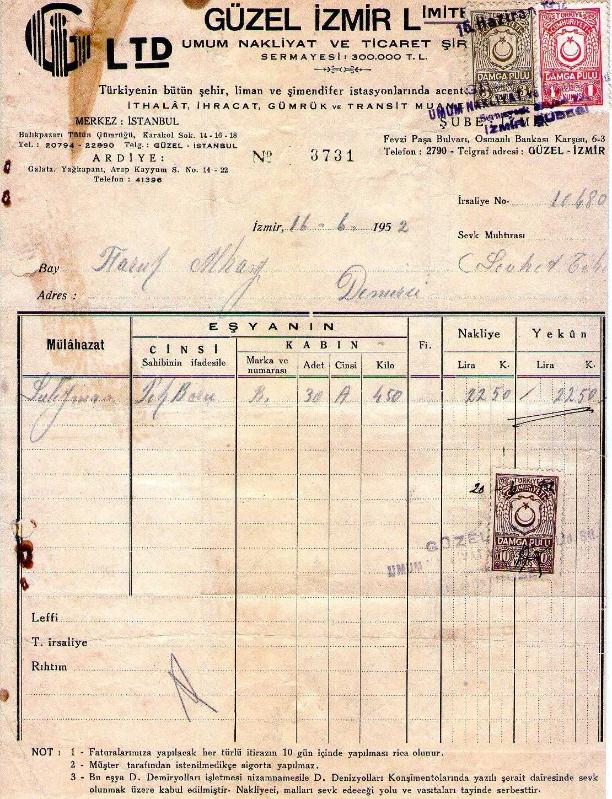 GÜZEL İZMİR LİMİTE
LTD
UMUM NAKLİYAT VE TİCARET ŞİR
SERMAYESİ: 300.000 T.L.
16 Haziran
TÜRKİYE CUMHURİYETİ
DAMGA PULU
TÜRKİYE CUMHURİYETİ
DAMGA PULU
1 1
Türkiyenin bütün şehir, liman ve şimendifer istasyonlarında acent
İTHALÂT, İHRACAT, GÜMRÜK ve TRANSİT MUA
UMUM NAKLİYAT
İZMİR ŞUBESİ
MERKEZ: İSTANBUL
Balıkpazarı Tütün Gümrüğü, Karakol Sok. 14-16-18
Tel.: 20794 - 22890 Telg.: GÜZEL - İSTANBUL
ARDİYE:
Galata, Yağkapanı, Arap Kayyum S. No. 14-22
Telefon: 41396
No 3731
ŞUBE
Fevzi Paşa Bulvarı, Osmanlı Bankası Karşısı, 6-3
Telefon: 2790 - Telgraf adresi: GÜZEL - İZMİR
İrsaliye No- 10680
İzmir, 16 - 6 - 1952
Sevk Muhtırası
Bay
Adres : Demirci
EŞYANIN
Mülâhazat
CİNSİ
Sahibinin ifadesile
KABIN
Marka ve numarası
Adet
Cinsi
Kilo
Fi.
Nakliye
Lira K.
Yekûn
Lira K.
B. 30 A 450 22 50 / 22 50
TÜRKİYE CUMHURİYETİ
DAMGA PULU
10 10
GÜZEL
UMUM
Leffi
T. irsaliye
Rıhtım
NOT : 1 - Faturalarımıza yapılacak her türlü itirazın 10 gün içinde yapılması rica olunur.
2 - Müşter tarafından istenilmedikçe sigorta yapılmaz.
3 - Bu eşya D. Demiryolları işletmesi nizamnamesile D. Denizyolları Konşimentolarında yazılı şerait dairesinde sevk
olunmak üzere kabul edilmiştir- Nakliyeci, malları sevk edeceği yolu ve vasıtaları tayinde serbesttir.